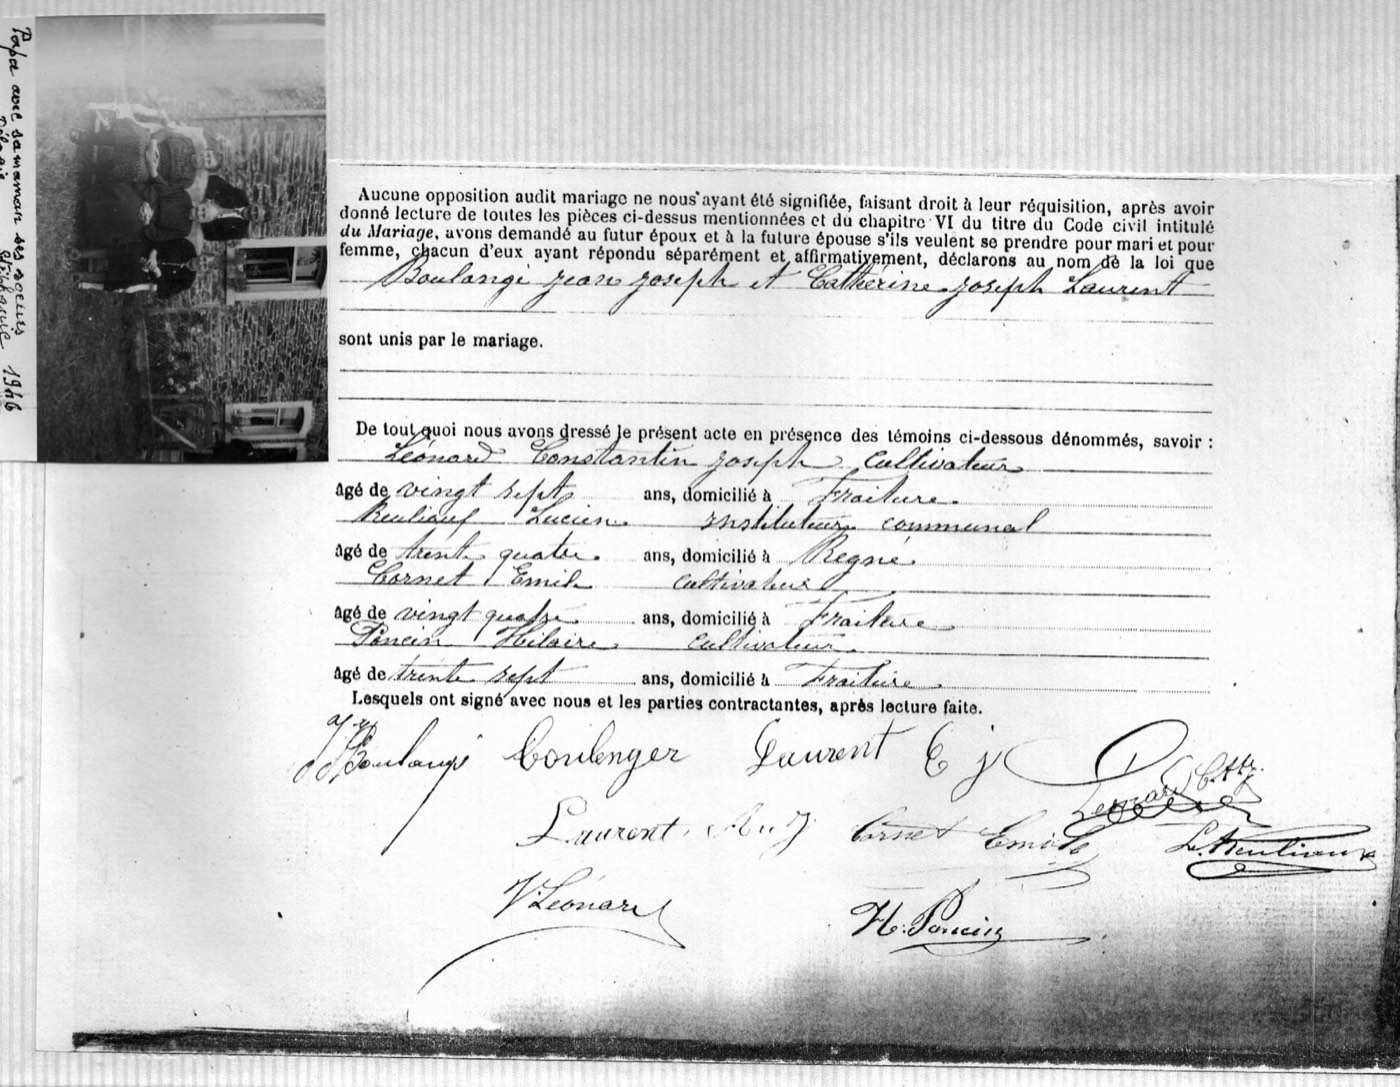 Papa avec sa maman ses soeurs
1946
Aucune opposition audit mariage ne nous ayant été signifiée, faisant droit à leur réquisition, après avoir
donné lecture de toutes les pièces ci-dessus mentionnées et du chapitre VI du titre du Code civil intitulé
du Mariage, avons demandé au futur époux et à la future épouse s'ils veulent se prendre pour mari et pour
femme, chacun d'eux ayant répondu séparément et affirmativement, déclarons au nom de la loi que
Boulangé Jean Joseph et Cathérine Joseph Laurent
sont unis par le mariage.
De tout quoi nous avons dressé le présent acte en présence des témoins ci-dessous dénommés, savoir :
Léonard Constantin Joseph cultivateur
âgé de vingt sept ans, domicilié à Fraiture
Lucien instituteur communal
âgé de trente quatre ans, domicilié à Regné
Cornet Emile cultivateur
âgé de vingt quatre ans, domicilié à Fraiture
Poncin Hilaire cultivateur
âgé de trente sept ans, domicilié à Fraiture
Lesquels ont signé avec nous et les parties contractantes, après lecture faite.
Boulangé Boulenger Laurent E j
Laurent Cornet Emile
V Léonard H. Poncin